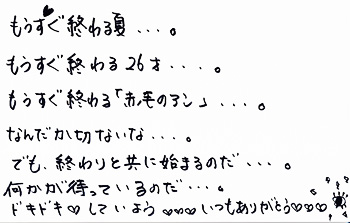 もうすぐ終わる夏・・・。
もうすぐ終わる26才・・・・。
もうすぐ終わる「赤毛のアン」・・・・。
なんだか切ないな・・・。
でも、終わりと共に始まるのだ・・・。
何かが待っているのだ・・・。
ドキドキ♡していよう♡♡♡いつもありがとう♡♡♡